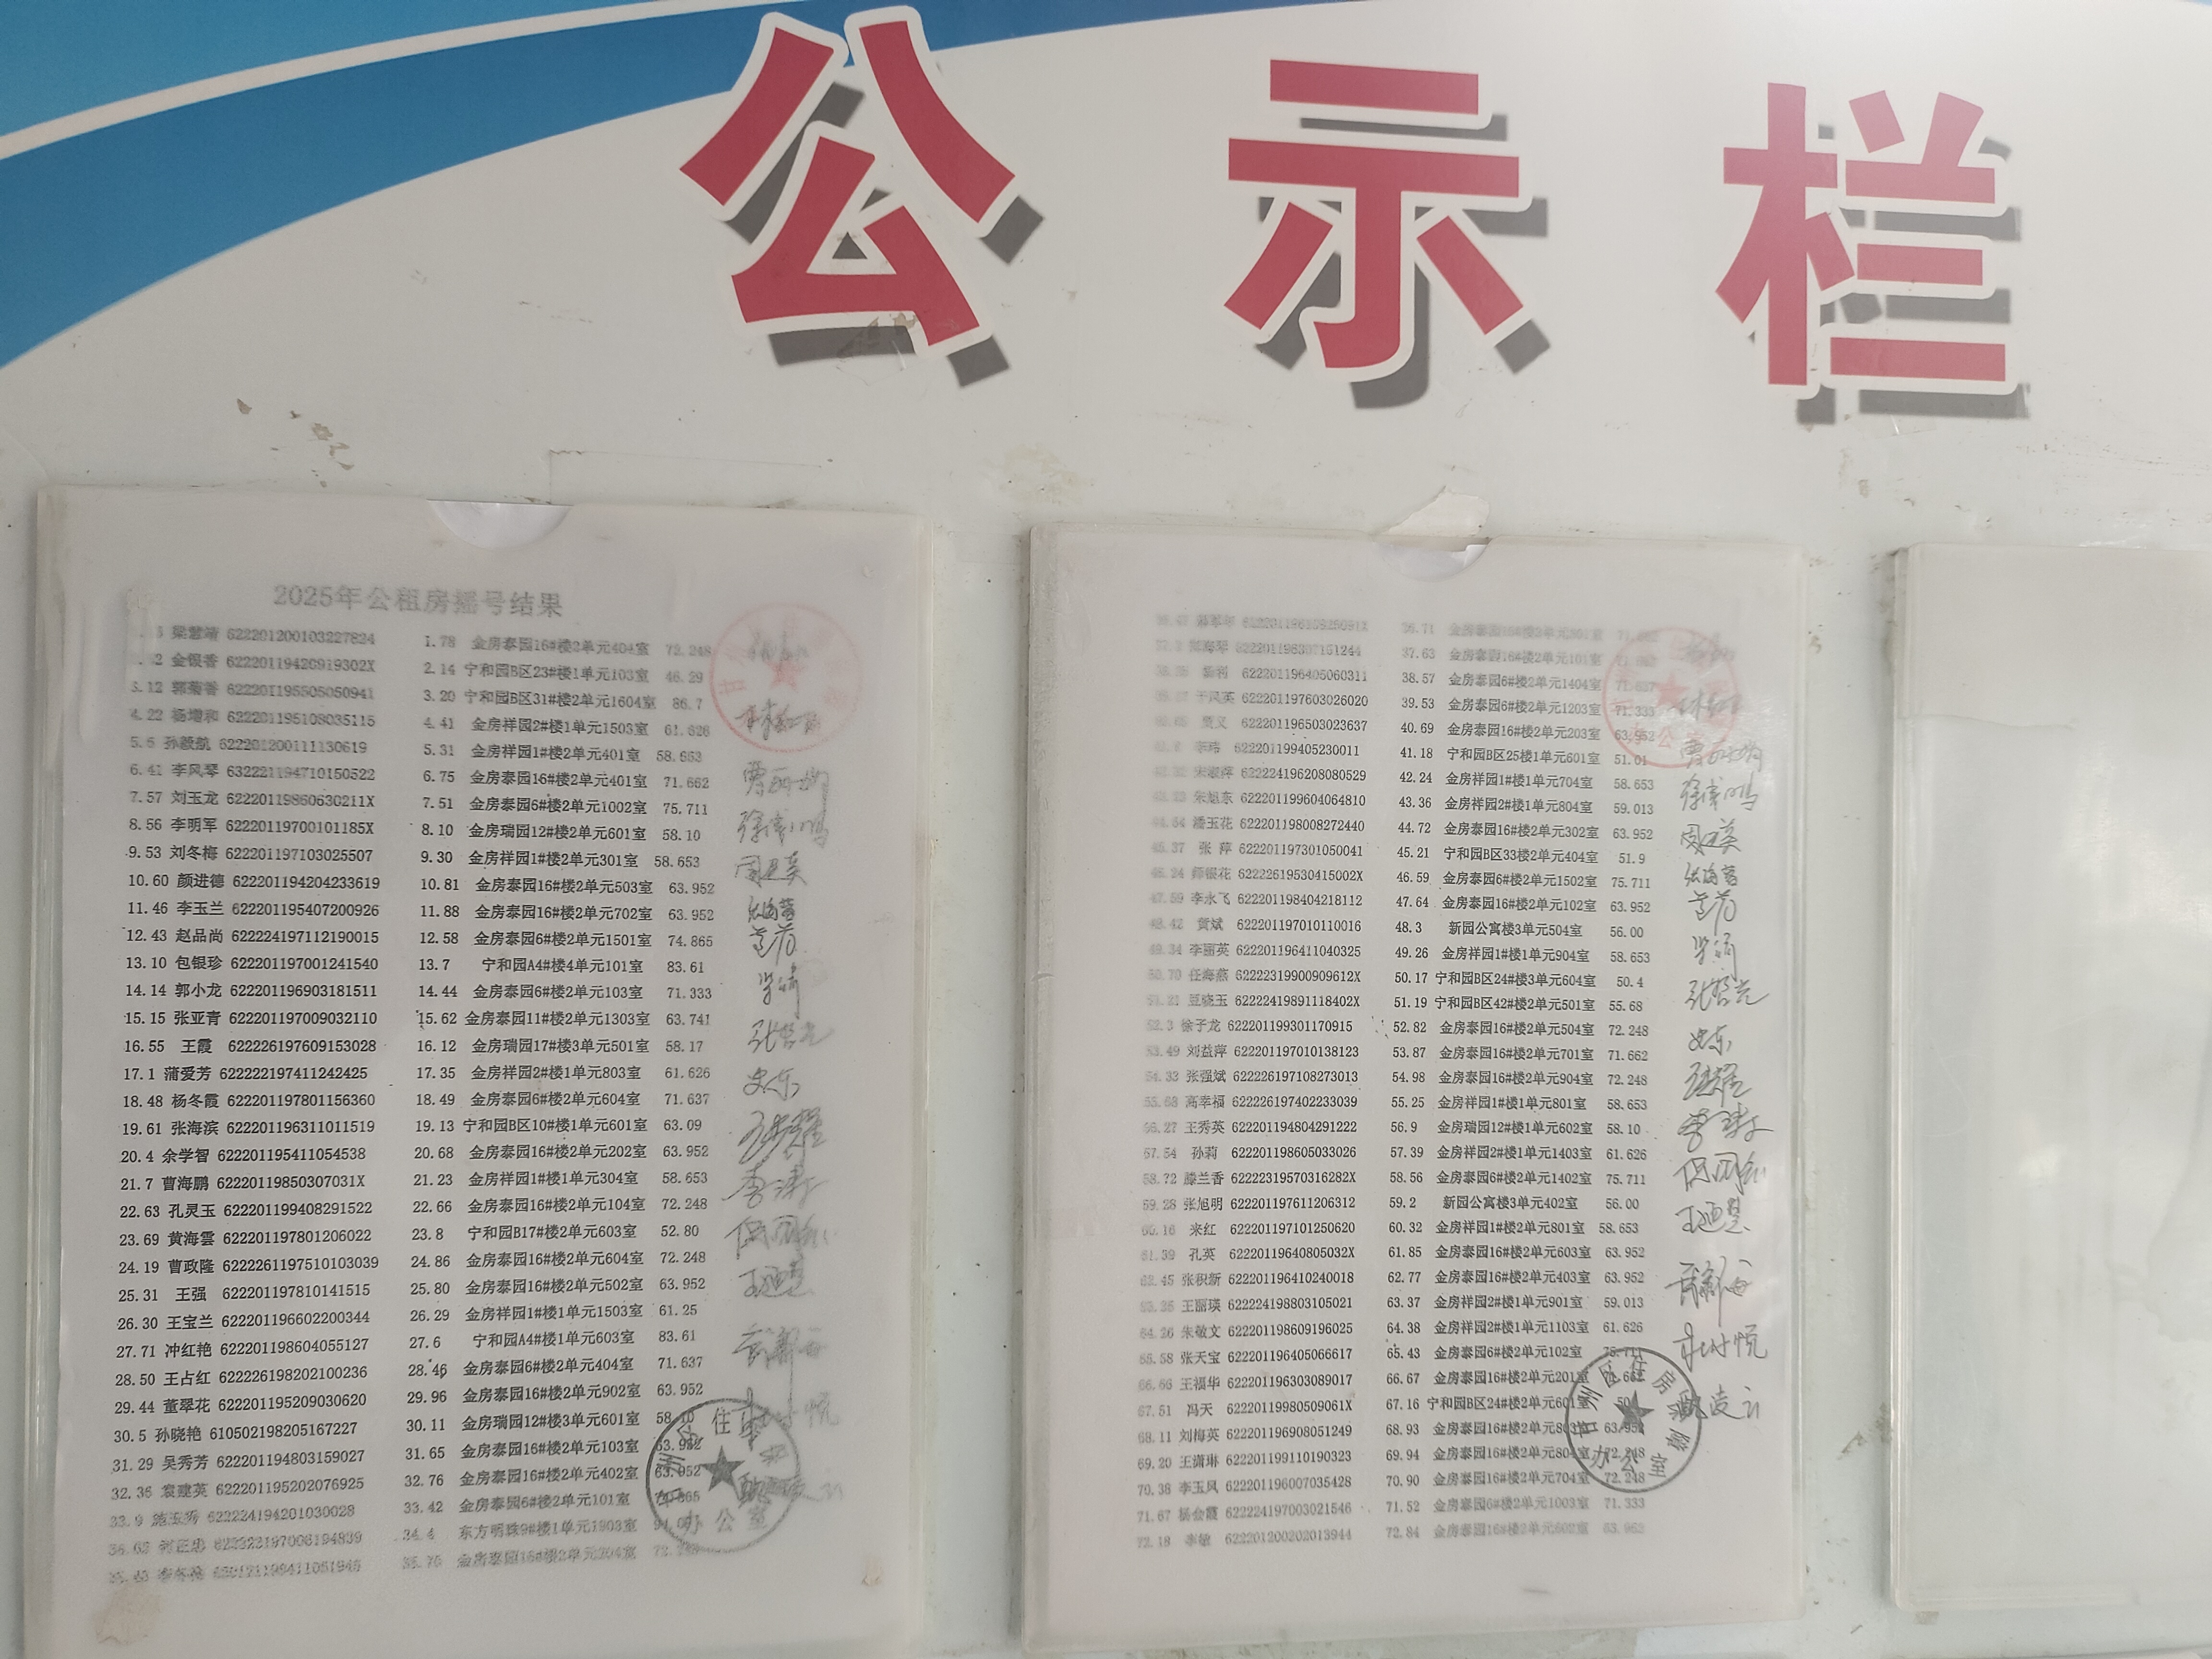 公示栏
2025年公租房摇号结果
梁慧靖 622201200103227824 1.78 金房泰园16#楼2单元404室 72.248
金银香 62220119420919302X 2.14 宁和园B区23#楼1单元103室 46.29
3.12 郭菊香 622201195505050941 3.20 宁和园B区31#楼2单元1604室 86.7
4.22 杨增和 622201195108035115 4.41 金房祥园2#楼1单元1503室 61.626
5.6 孙毅航 622201200111130619 5.31 金房祥园1#楼2单元401室 58.653
6.41 李风琴 632221194710150522 6.75 金房泰园16#楼2单元401室 71.662
7.57 刘玉龙 62220119860630211X 7.51 金房泰园6#楼2单元1002室 75.711
8.56 李明军 62220119700101185X 8.10 金房瑞园12#楼2单元601室 58.10
9.53 刘冬梅 622201197103025507 9.30 金房祥园1#楼2单元301室 58.653
10.60 颜进德 622201194204233619 10.81 金房泰园16#楼2单元503室 63.952
11.46 李玉兰 622201195407200926 11.88 金房泰园16#楼2单元702室 63.952
12.43 赵品尚 622224197112190015 12.58 金房泰园6#楼2单元1501室 74.865
13.10 包银珍 622201197001241540 13.7 宁和园A4#楼4单元101室 83.61
14.14 郭小龙 622201196903181511 14.44 金房泰园6#楼2单元103室 71.333
15.15 张亚青 622201197009032110 15.62 金房泰园11#楼2单元1303室 63.741
16.55 王霞 622226197609153028 16.12 金房瑞园17#楼3单元501室 58.17
17.1 蒲爱芳 622222197411242425 17.35 金房祥园2#楼1单元803室 61.626
18.48 杨冬霞 622201197801156360 18.49 金房泰园6#楼2单元604室 71.637
19.61 张海滨 622201196311011519 19.13 宁和园B区10#楼1单元601室 63.09
20.4 余学智 622201195411054538 20.68 金房泰园16#楼2单元202室 63.952
21.7 曹海鹏 62220119850307031X 21.23 金房祥园1#楼1单元304室 58.653
22.63 孔灵玉 622201199408291522 22.66 金房泰园16#楼2单元104室 72.248
23.69 黄海雲 622201197801206022 23.8 宁和园B17#楼2单元603室 52.80
24.19 曹政隆 622226197510103039 24.86 金房泰园16#楼2单元604室 72.248
25.31 王强 622201197810141515 25.80 金房泰园16#楼2单元502室 63.952
26.30 王宝兰 622201196602200344 26.29 金房祥园1#楼1单元1503室 61.25
27.71 冲红艳 622201198604055127 27.6 宁和园A4#楼1单元603室 83.61
28.50 王占红 622226198202100236 28.46 金房泰园6#楼2单元404室 71.637
29.44 董翠花 622201195209030620 29.96 金房泰园16#楼2单元902室 63.952
30.5 孙晓艳 610502198205167227 30.11 金房瑞园12#楼3单元601室 58.10
31.29 吴秀芳 622201194803159027 31.65 金房泰园16#楼2单元103室 63.952
32.36 袁建英 622201195202076925 32.76 金房泰园16#楼2单元402室 63.952
33.9 施玉秀 622224194201030028 33.42 金房泰园6#楼2单元101室
34.4 东方明珠9#楼1单元1903室
35.70 金房泰园16#楼2单元204室
36.71 金房泰园16#楼2单元301室
37.63 金房泰园16#楼2单元101室
622201196405060311 38.57 金房泰园6#楼2单元1404室 71.637
于凤英 622201197603026020 39.53 金房泰园6#楼2单元1203室 71.333
622201196503023637 40.69 金房泰园16#楼2单元203室 63.952
李玮 622201199405230011 41.18 宁和园B区25#楼1单元601室 51.01
宋淑萍 622224196208080529 42.24 金房祥园1#楼1单元704室 58.653
朱旭东 622201199604064810 43.36 金房祥园2#楼1单元804室 59.013
潘玉花 622201198008272440 44.72 金房泰园16#楼2单元302室 63.952
45.37 张萍 622201197301050041 45.21 宁和园B区33#楼2单元404室 51.9
46.24 师银花 62222619530415002X 46.59 金房泰园6#楼2单元1502室 75.711
47.59 李永飞 622201198404218112 47.64 金房泰园16#楼2单元102室 63.952
48.42 贺斌 622201197010110016 48.3 新园公寓楼3单元504室 56.00
49.34 李丽英 622201196411040325 49.26 金房祥园1#楼1单元904室 58.653
50.70 任海燕 62222319900909612X 50.17 宁和园B区24#楼3单元604室 50.4
51.21 豆晓玉 62222419891118402X 51.19 宁和园B区42#楼2单元501室 55.68
52.3 徐子龙 622201199301170915 52.82 金房泰园16#楼2单元504室 72.248
53.49 刘益萍 622201197010138123 53.87 金房泰园16#楼2单元701室 71.662
54.33 张强斌 622226197108273013 54.98 金房泰园16#楼2单元904室 72.248
55.68 高幸福 622226197402233039 55.25 金房祥园1#楼1单元801室 58.653
56.27 王秀英 622201194804291222 56.9 金房瑞园12#楼1单元602室 58.10
57.54 孙莉 622201198605033026 57.39 金房祥园2#楼1单元1403室 61.626
58.72 滕兰香 62223195703​16282X 58.56 金房泰园6#楼2单元1402室 75.711
59.28 张旭明 622201197611206312 59.2 新园公寓楼3单元402室 56.00
60.16 来红 622201197101250620 60.32 金房祥园1#楼2单元801室 58.653
61.39 孔英 62220119640805032X 61.85 金房泰园16#楼2单元603室 63.952
62.45 张积新 622201196410240018 62.77 金房泰园16#楼2单元403室 63.952
63.35 王丽瑛 622224198803105021 63.37 金房祥园2#楼1单元901室 59.013
64.26 朱敏文 622201198609196025 64.38 金房祥园2#楼1单元1103室 61.626
65.58 张天宝 622201196405066617 65.43 金房泰园6#楼2单元102室 75.711
66.66 王福华 622201196303089017 66.67 金房泰园16#楼2单元201室
67.51 冯天 62220119980509061X 67.16 宁和园B区24#楼2单元601室
68.11 刘梅英 622201196908051249 68.93 金房泰园16#楼2单元803室 63.952
69.20 王潇琳 622201199110190323 69.94 金房泰园16#楼2单元804室 72.248
70.38 李玉凤 622201196007035428 70.90 金房泰园16#楼2单元704室 72.248
71.67 杨会霞 622224197003021546 71.52 金房泰园6#楼2单元1003室 71.333
72.18 李敏 622201200202013944 72.84 金房泰园16#楼2单元602室 63.952